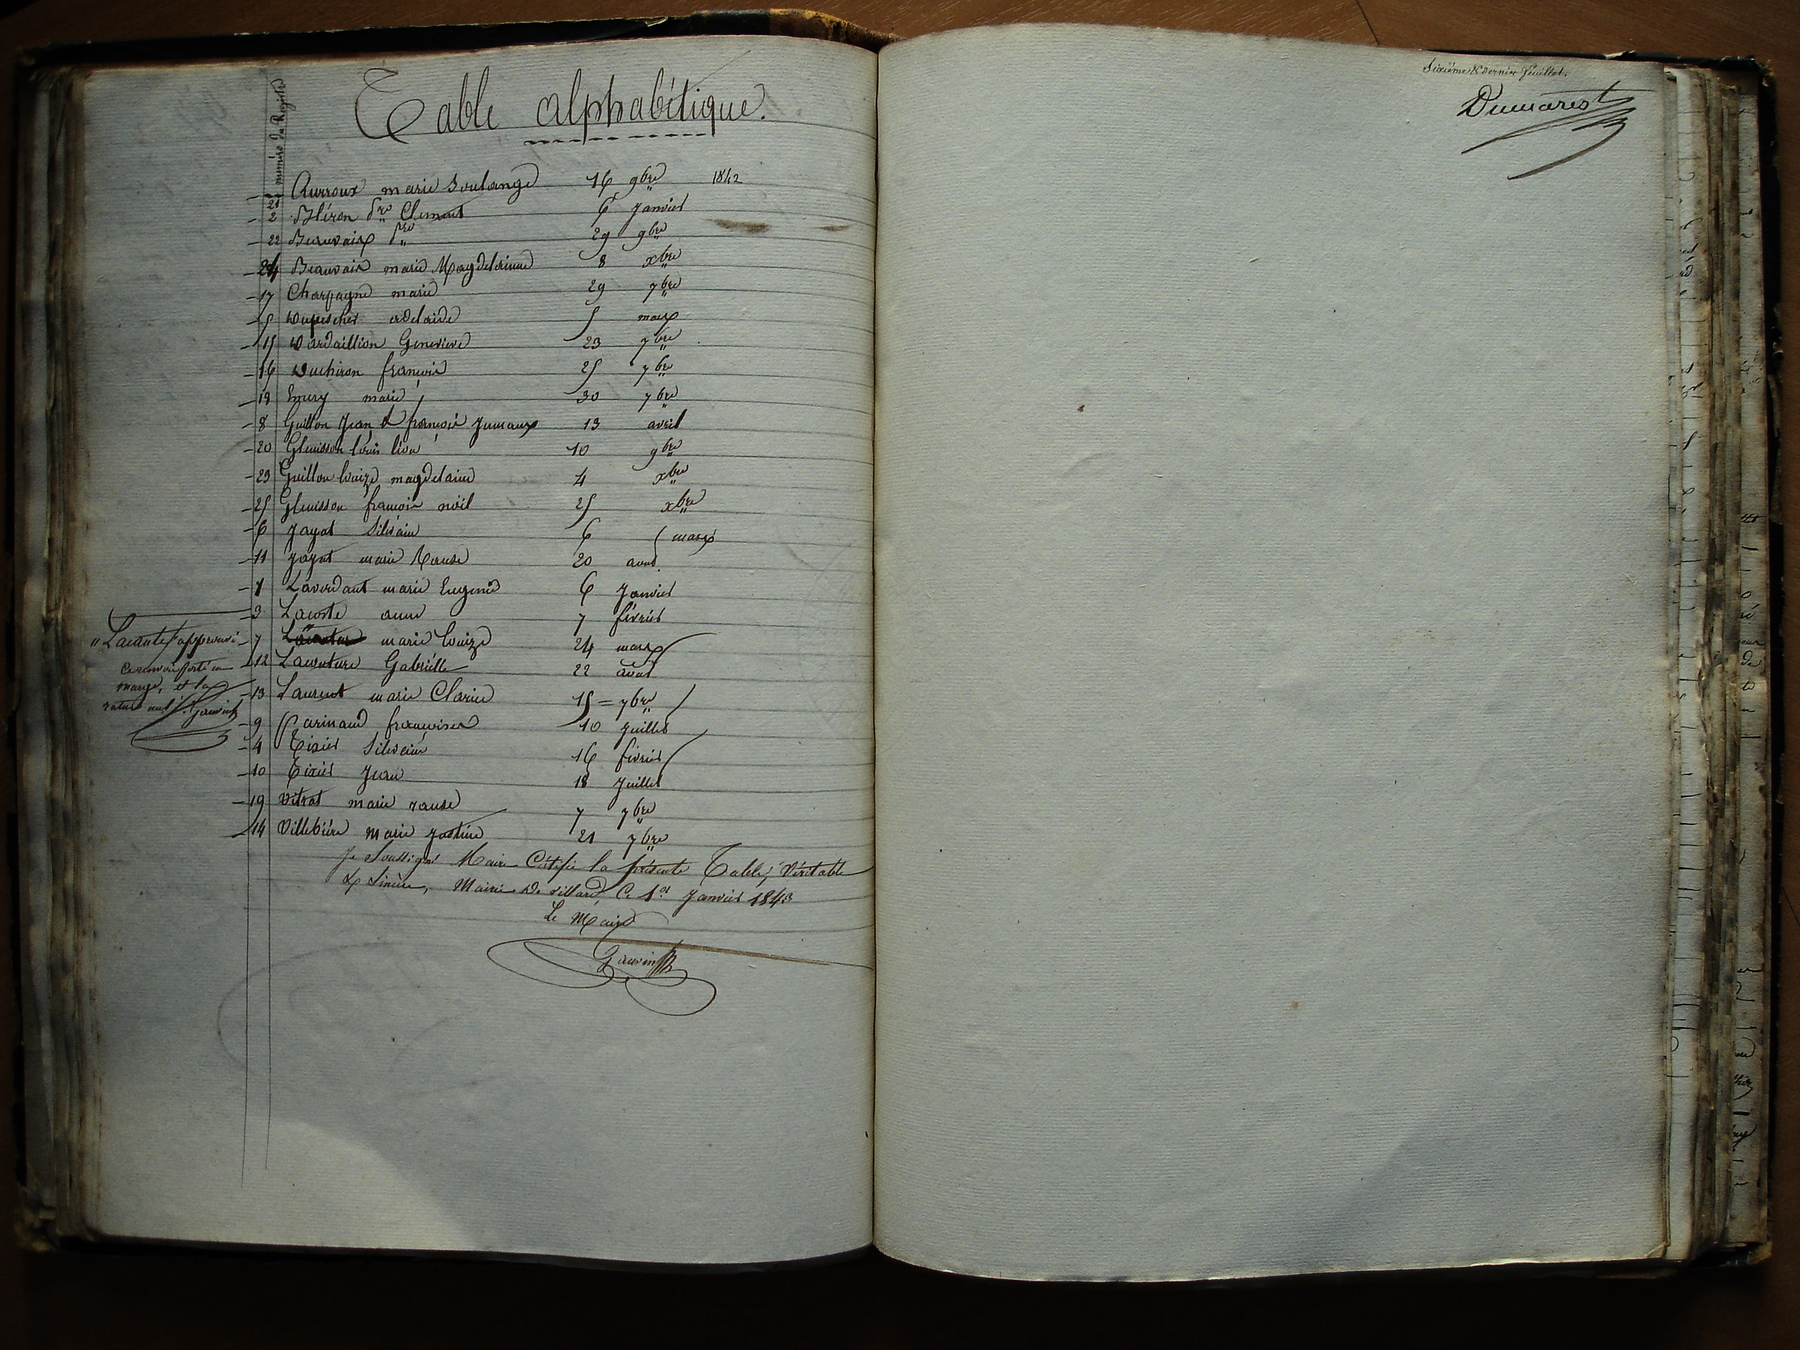 numéro du Registre
Table alphabétique.
21 Aurroux marie Soulange 16 9bre 1842
2 Bléron pre Clement 6 Janvier
22 Beauvais pre 29 9bre
24 Beauvais marie Magdelainne 8 xbre
17 Charpagne marie 29 7bre
5 adelaide 5 mars
15 Dardaillion Genevieve 23 7bre
16 Duchiron francois 25 7bre
18 Emery marie 30 7bre
8 Guillon Jean & francois Jumaux 13 avril
20 Glenisson Louis 10 9bre
23 Guillon Louize magdelaine 4 xbre
25 Glenisson francois noël 25 xbre
6 Jayat Silvain 6 mars
11 Jayat marie Rause 20 aout
1 Lavordant marie Eugenie 6 Janvier
3 Lacoste anne 7 février
7 marie Louize 24 mars
12 Laventure Gabrielle 22 août
13 Laurent marie Clarice 15 = 7bre
9 Parinaud francoises 10 Juillet
4 Tixier Silvain 16 février
10 Tixier Jean 18 Juillet
19 Vitrat marie rause 7 7bre
14 Villebière Marie Justine 21 7bre
approuvé
marge, et la
rature nul. Gauvin
Je Soussigné Maire Certifie la présente Table, Véritable
& Sincère, Mairie de Villard, Ce 1er Janvier 1843
Le Maire
Gauvin
Sixième & dernier feuillet.
Dumarest